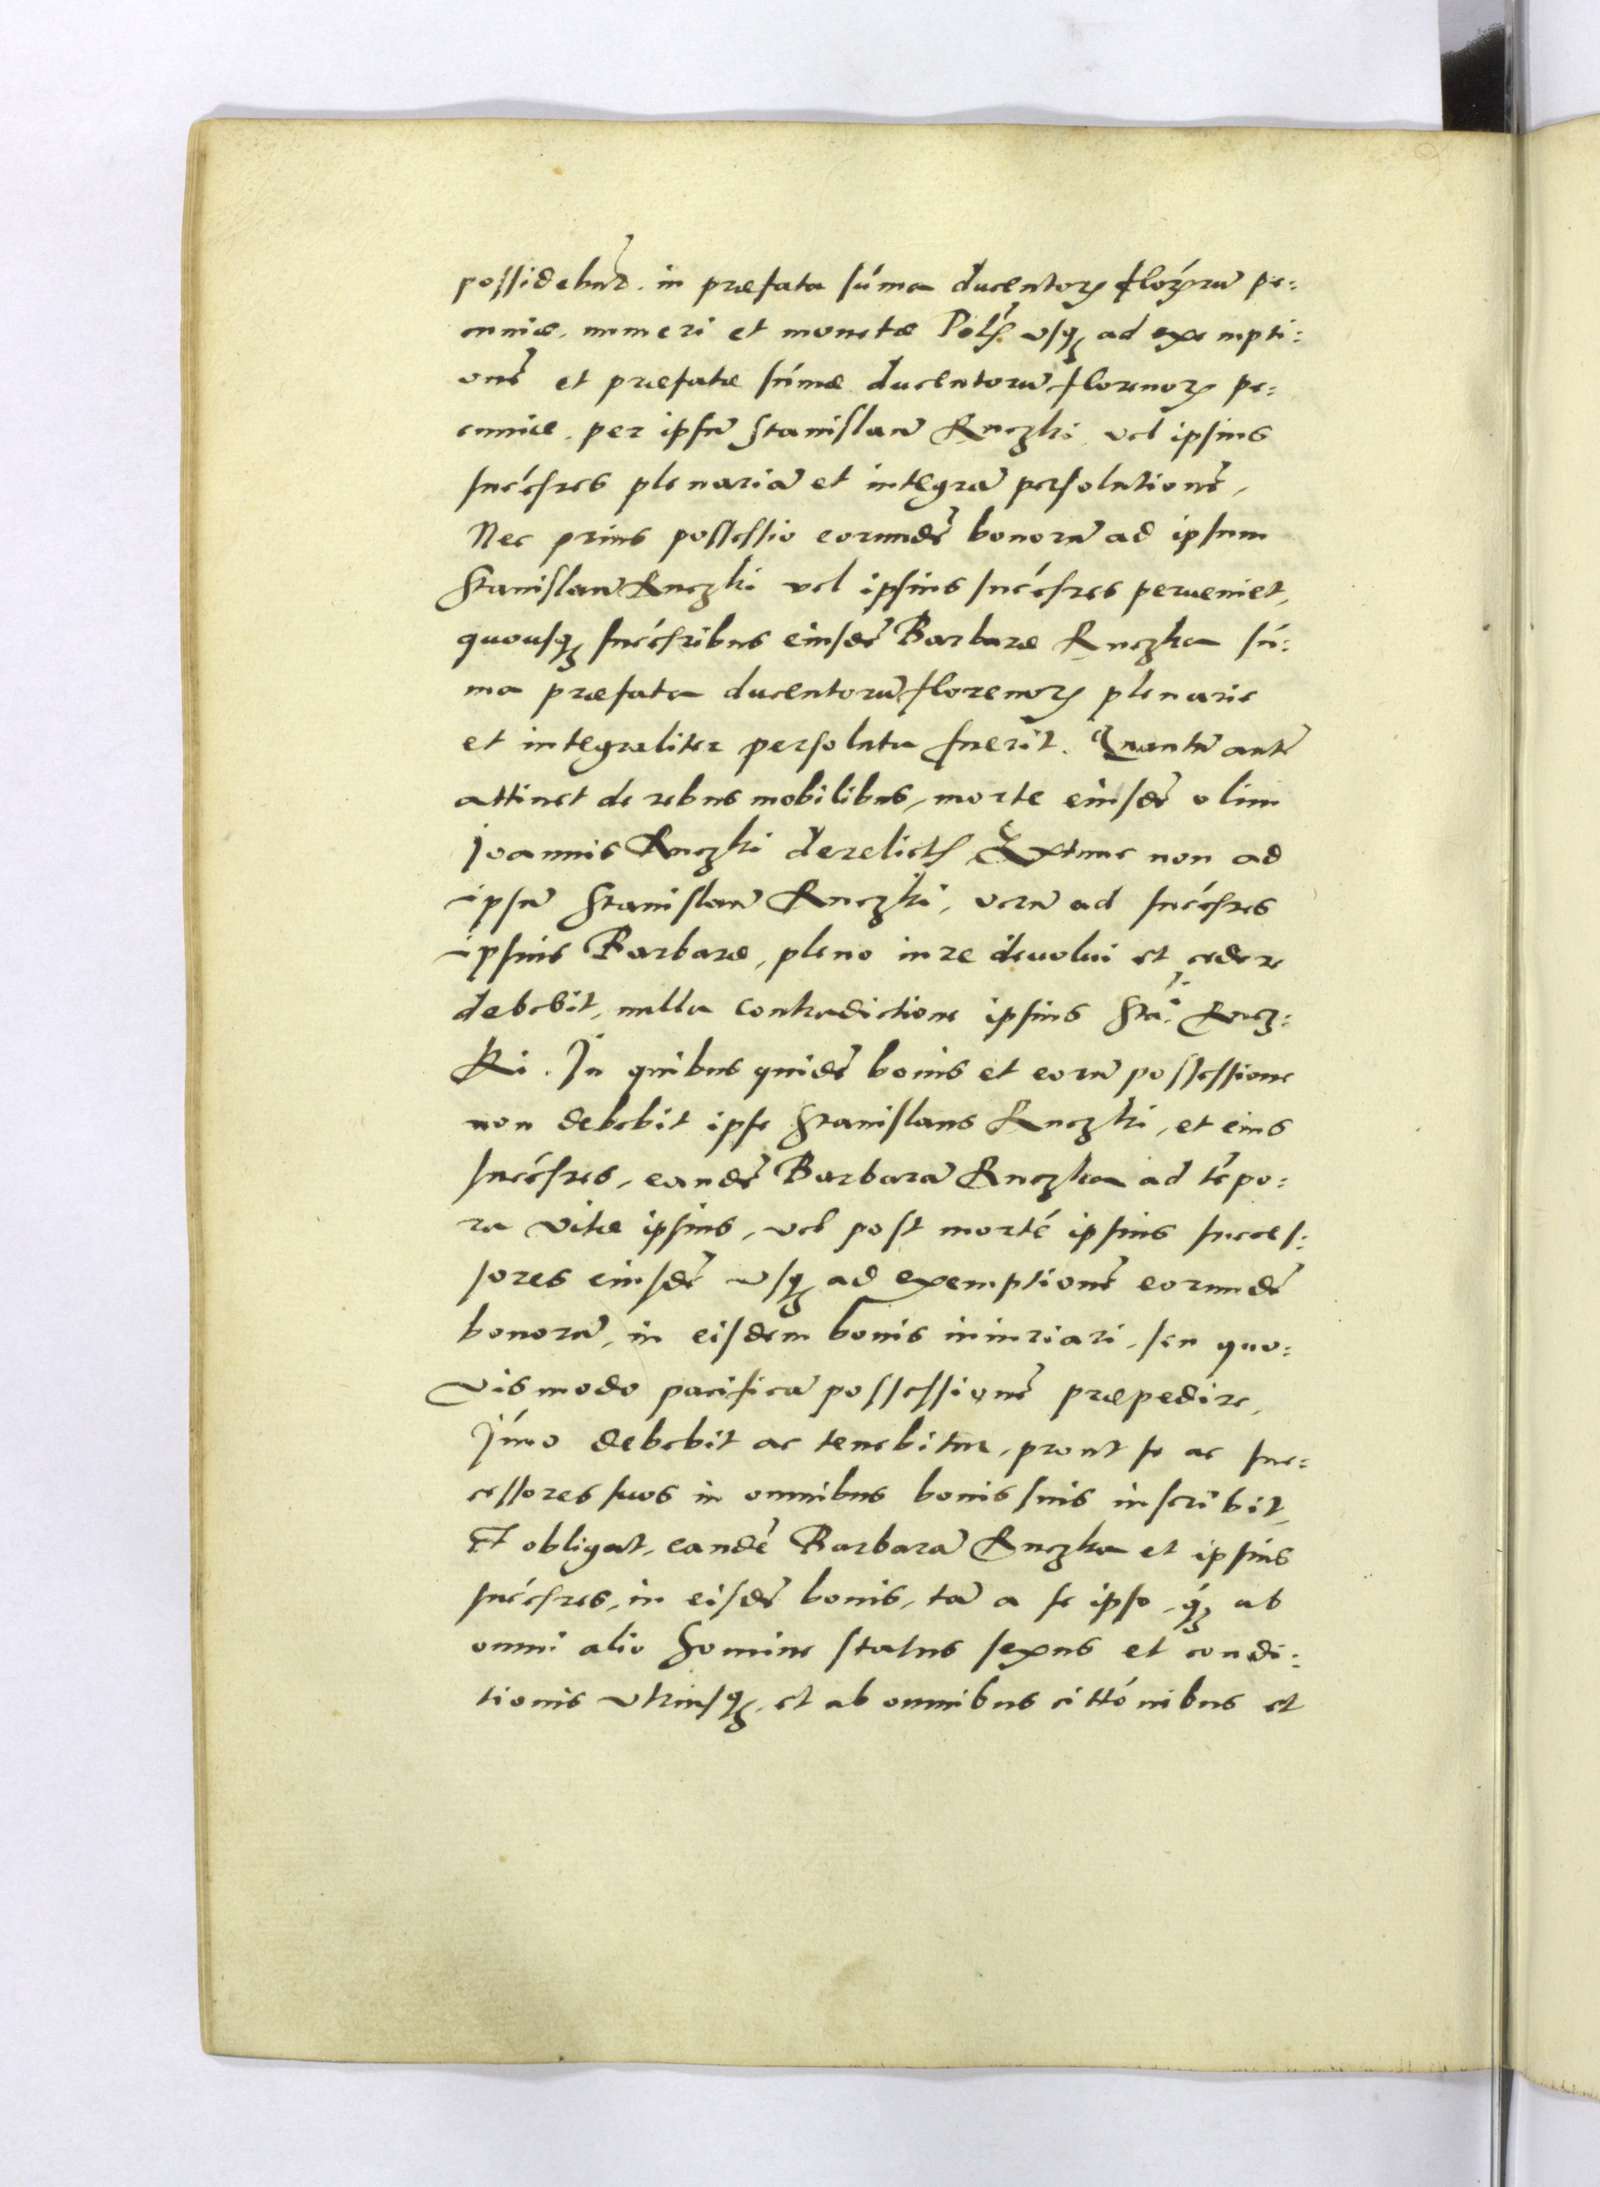 possidebut. in præfata súma ducentorꝝ florenoru pe:
cuniæ, numeri et monetæ Pol: usqꝫ ad exempti:
onē et præfatæ súmæ ducentorū florenorꝝ pe:
cuniæ, per ipsū Stanislaū Ruczki vel ipsius
succ̄sres plenariā et integrā persolutionē,
Nec prius possessio eorundē bonorū ad ipsum
Stanislaū Ruczki vel ipsius succ̄sres perueniet,
quousqꝫ succ̄sribus eiusdē Barbaræ Ruczka sú:
ma præfata ducentorū florenorꝝ plenarie
et integraliter persoluta fuerit. Quantū autē
attinet de rebus mobilibus, morte eiusdē olim
Joannis Ruczki derelict: Extunc non ad
ipsū Stanislaū Ruczki, verū ad succ̄sres
ipsius Barbaræ, pleno iure deuolui et cedere
debebit, nulla contradictione ipsius Sta: Rucz:
ki. In quibus quidē bonis et eorū possessione
non debebit ipse Stanislaus Ruczki, et eius
succ̄sres, eandē Barbarā Ruczka ad tēpo:
ra vitæ ipsius, vel post mortē ipsius succes:
sores eiusdē usqꝫ ad exemptionē eorundē
bonorū, in eisdem bonis iniuriari, seu quo:
vismodo pacificā possessionē præpedire,
Jḿo debebit ac tenebitur, prout se ac suc:
cessores suos in omnibus bonis suis inscribit,
Et obligat, eandē Barbarā Ruczka et ipsius
succ̄sres, in eisdē bonis, tā a se ipso, qꝫ ab
omni alio homine status sexus et condi:
tionis utriusqꝫ, et ab omnibus cittónibus et